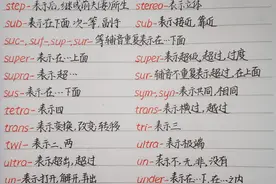 step-表示后,继,线(前夫,妻)所生 stereo-表示立体
sub-表示在下面,次-等,副将 sur-表示接近,靠近
suc-,suf-,sup-,sur-等辅音重复表示在…下面
super-表示在…上面 super-表示超级,超过,过度
supra-表示超… sur-辅音不重复表示超过,在上面
sus-表示在…下面 sym-,syn-表示共同,相同
tetra-表示四 trans-表示横过,越过
trans-表示变换,改变,转移 tri-表示三
twi-表示二,两 ultra-表示极端
ultra-表示超出,超过 un-表示不,无,非,没有
un-表示打开,解开,弄出 under-表示在…下,在…之内